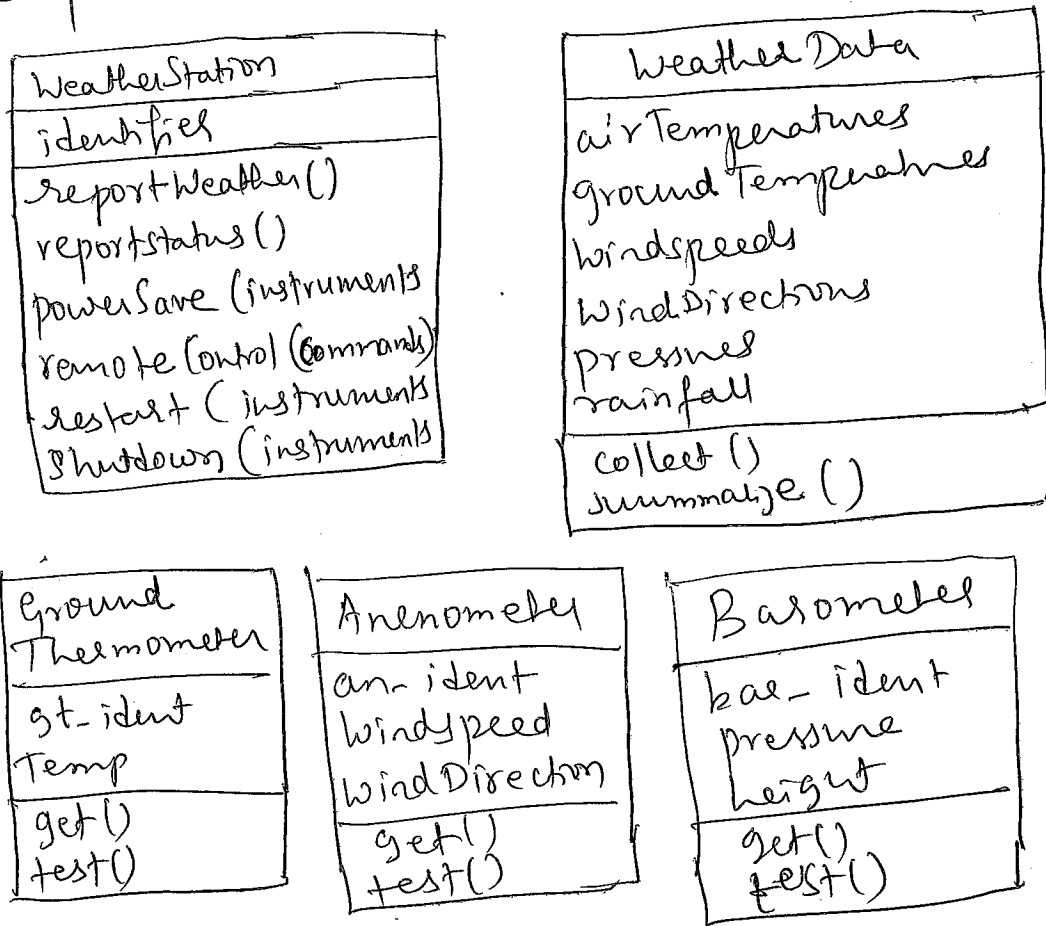 WeatherStation
identifier
reportWeather()
reportstatus()
powerSave (instruments
remote Control (Commands)
restart ( instruments
Shutdown (instruments
Weather Data
airTemperatures
groundTemperatures
windspeeds
WindDirections
pressures
rainfall
collect ()
summarize ()
Ground
Thermometer
gt_ident
Temp
get()
test()
Anenometer
an_ident
Windspeed
WindDirection
get()
test()
Barometer
bar_ident
pressure
height
get()
test()